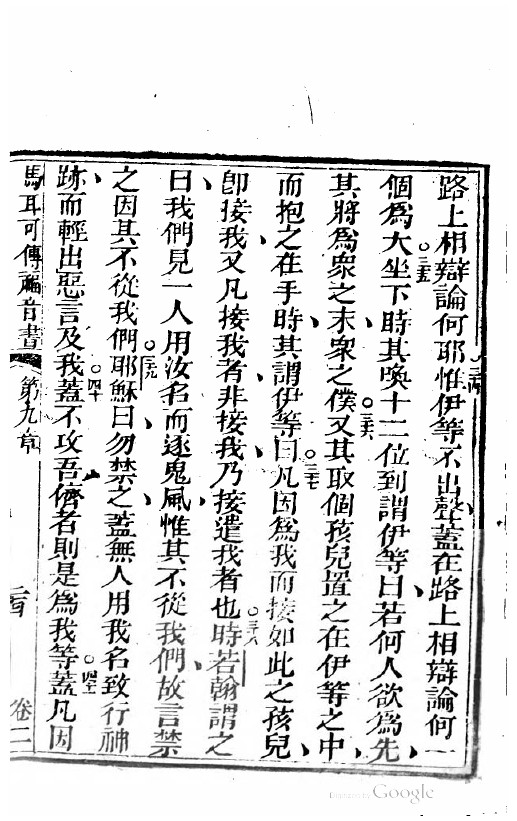 路上相辯論何耶三四惟伊等不出聲蓋在路上相辯論何一
個為大三五坐下時其喚十二位到謂伊等曰若何人欲為先
其將為衆之末衆之僕三六又其取個孩兒置之在伊等之中
而抱之在手時其謂伊等曰三七凡因為我而接如此之孩兒
卽接我又凡接我者非接我乃接遣我者也三八時若翰謂之
曰我們見一人用汝名而逐鬼風惟其不從我們故言禁
之因其不從我們三九耶穌曰勿禁之蓋無人用我名致行神
跡而輕出惡言及我四十蓋不攻吾儕者則是為我等四一蓋凡因
馬耳可傳福音書 第九章 卷二
Digitized by Google